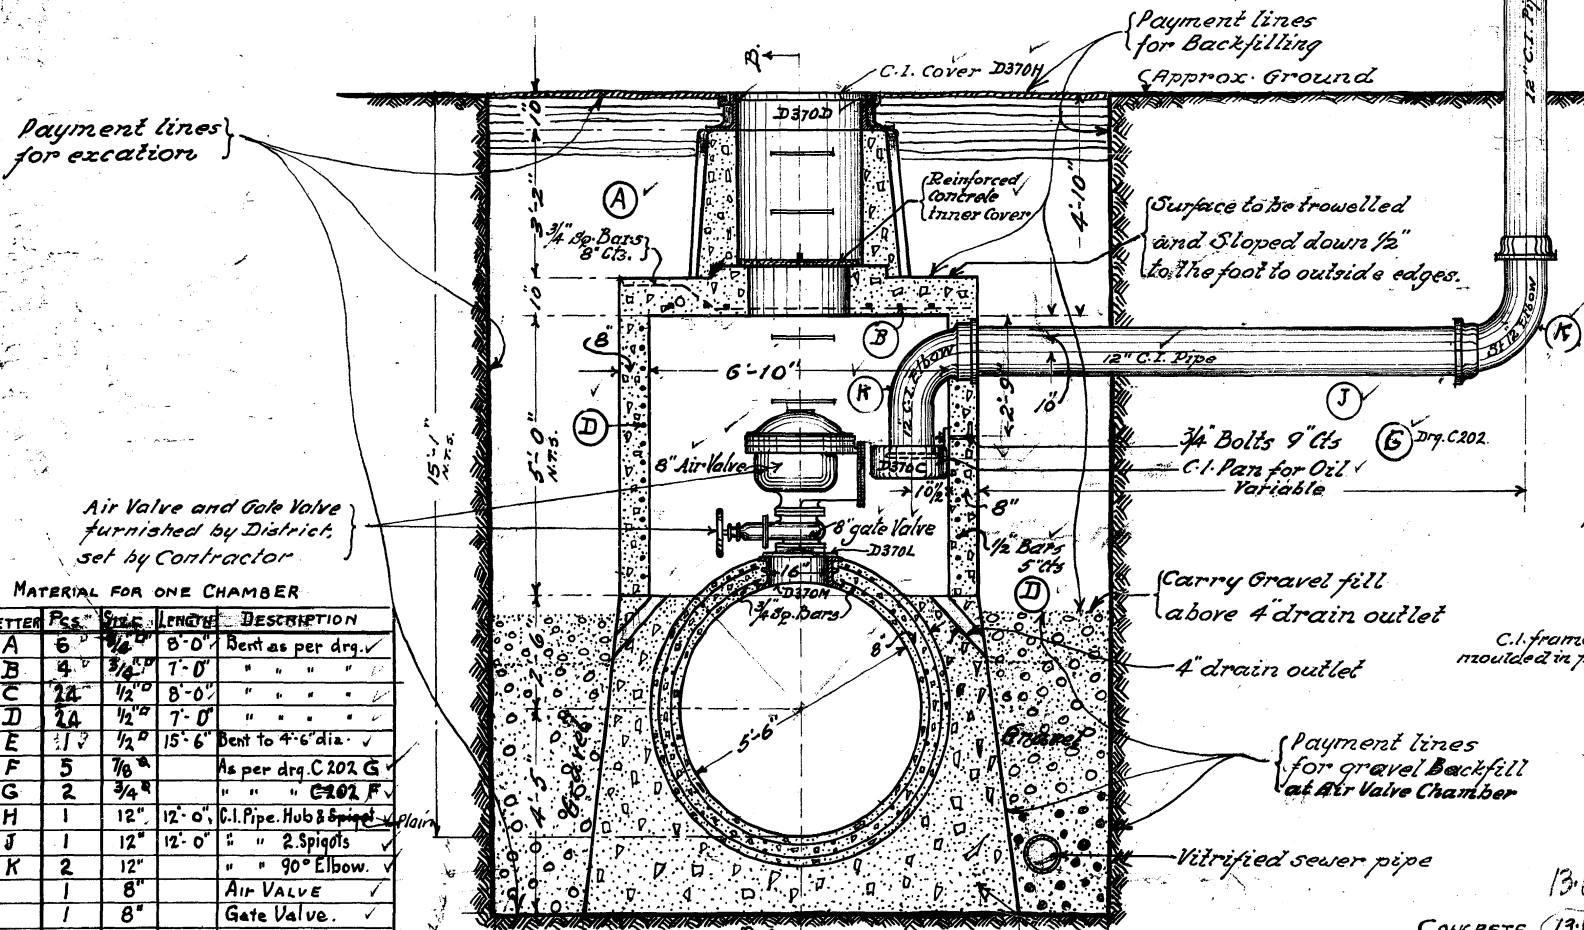 Payment lines
for Backfilling
Approx. Ground
12" C.I. Pipe
B.
C.I. Cover D370H
Payment lines
for excation
10"
D370D
3'-2"
A
3/4" Sq. Bars
8" Cts.
Reinforced
Concrete
Inner Cover
4'-10"
Surface to be trowelled
and Sloped down 1/2"
to the foot to outside edges.
10"
8"
B
6'-10"
K
12" C.I. Elbow
12" C.I. Pipe
2'-9"
10"
J
K
D
15'-1"
N.T.S.
5'-0"
N.T.S.
8" Air Valve
D370C
10 1/2"
3/4" Bolts 9" Cts
G Drg. C202.
C.I. Pan for Oil
Variable
8"
Air Valve and Gate Valve
furnished by District,
set by Contractor
8" gate Valve
D370L
1/2" Bars
5" Cts
D
16"
D370M
3/4" Sq. Bars
Carry Gravel fill
above 4" drain outlet
4" drain outlet
C.I. frame
moulded in
2'-6"
8"
5'-6"
4'-5"
Gravel
Gravel
Payment lines
for gravel Backfill
at Air Valve Chamber
Vitrified sewer pipe
MATERIAL FOR ONE CHAMBER
ETTER Pcs Size LENGTH DESCRIPTION
A 6 3/4" 8'-0" Bent as per drg.
B 4 3/4" 7'-0" " " " "
C 24 1/2" 8'-0" " " " "
D 24 1/2" 7'-0" " " " "
E 1 1/2" 15'-6" Bent to 4'-6" dia.
F 5 7/8" As per drg. C202 G
G 2 3/4" " " " C202 F
H 1 12" 12'-0" C.I. Pipe. Hub & Spigot Plain
J 1 12" 12'-0" " " 2 Spigots
K 2 12" " " 90° Elbow.
1 8" Air VALVE
1 8" Gate Valve.
CONCRETE